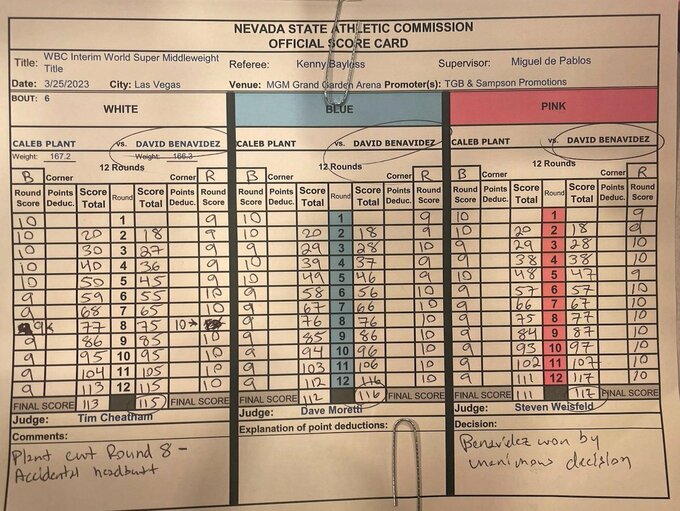 NEVADA STATE ATHLETIC COMMISSION
OFFICIAL SCORE CARD
Title: WBC Interim World Super Middleweight Title Referee: Kenny Bayless Supervisor: Miguel de Pablos
Date: 3/25/2023 City: Las Vegas Venue: MGM Grand Garden Arena Promoter(s): TGB & Sampson Promotions
BOUT: 6
WHITE BLUE PINK
CALEB PLANT vs. DAVID BENAVIDEZ CALEB PLANT vs. DAVID BENAVIDEZ CALEB PLANT vs. DAVID BENAVIDEZ
Weight: 167.2 Weight: 166.3
12 Rounds 12 Rounds 12 Rounds
B Corner Corner R B Corner Corner R B Corner Corner R
Round Score Points Deduc. Score Total Round Score Total Points Deduc. Round Score Round Score Points Deduc. Score Total Round Score Total Points Deduc. Round Score Round Score Points Deduc. Score Total Round Score Total Points Deduc. Round Score
10 1 9 10 1 9 10 1 9
10 20 2 18 9 10 20 2 18 9 10 20 2 18 9
10 30 3 27 9 9 29 3 28 10 9 29 3 28 10
10 40 4 36 9 10 39 4 37 9 9 38 4 38 10
10 50 5 45 9 10 49 5 46 9 10 48 5 47 9
9 59 6 55 10 9 58 6 56 10 9 57 6 57 10
9 68 7 65 10 9 67 7 66 10 9 66 7 67 10
9 77 8 75 10 9 76 8 76 10 9 75 8 77 10
9 86 9 85 10 9 85 9 86 10 9 84 9 87 10
9 95 10 95 10 9 94 10 96 10 9 93 10 97 10
9 104 11 105 10 9 103 11 106 10 9 102 11 107 10
9 113 12 115 10 9 112 12 116 10 9 111 12 117 10
FINAL SCORE 113 115 FINAL SCORE FINAL SCORE 112 116 FINAL SCORE FINAL SCORE 111 117 FINAL SCORE
Judge: Tim Cheatham Judge: Dave Moretti Judge: Steven Weisfeld
Comments: Explanation of point deductions: Decision:
Plant cut Round 8 - Benavidez won by
Accidental headbutt unanimous decision